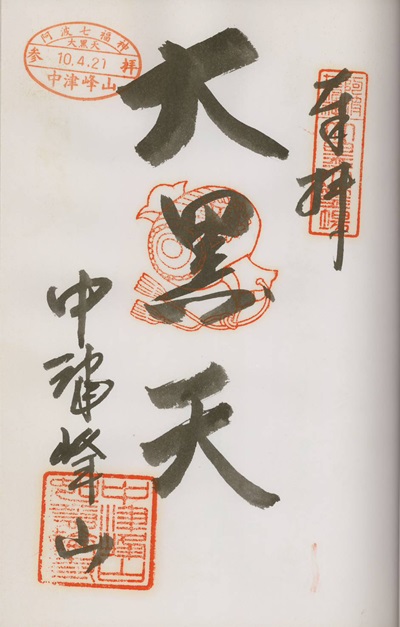 奉拝
大黒天
中津峰山
阿波七福神
大黒天
参 10.4.21 拝
中津峰山
中津峰山